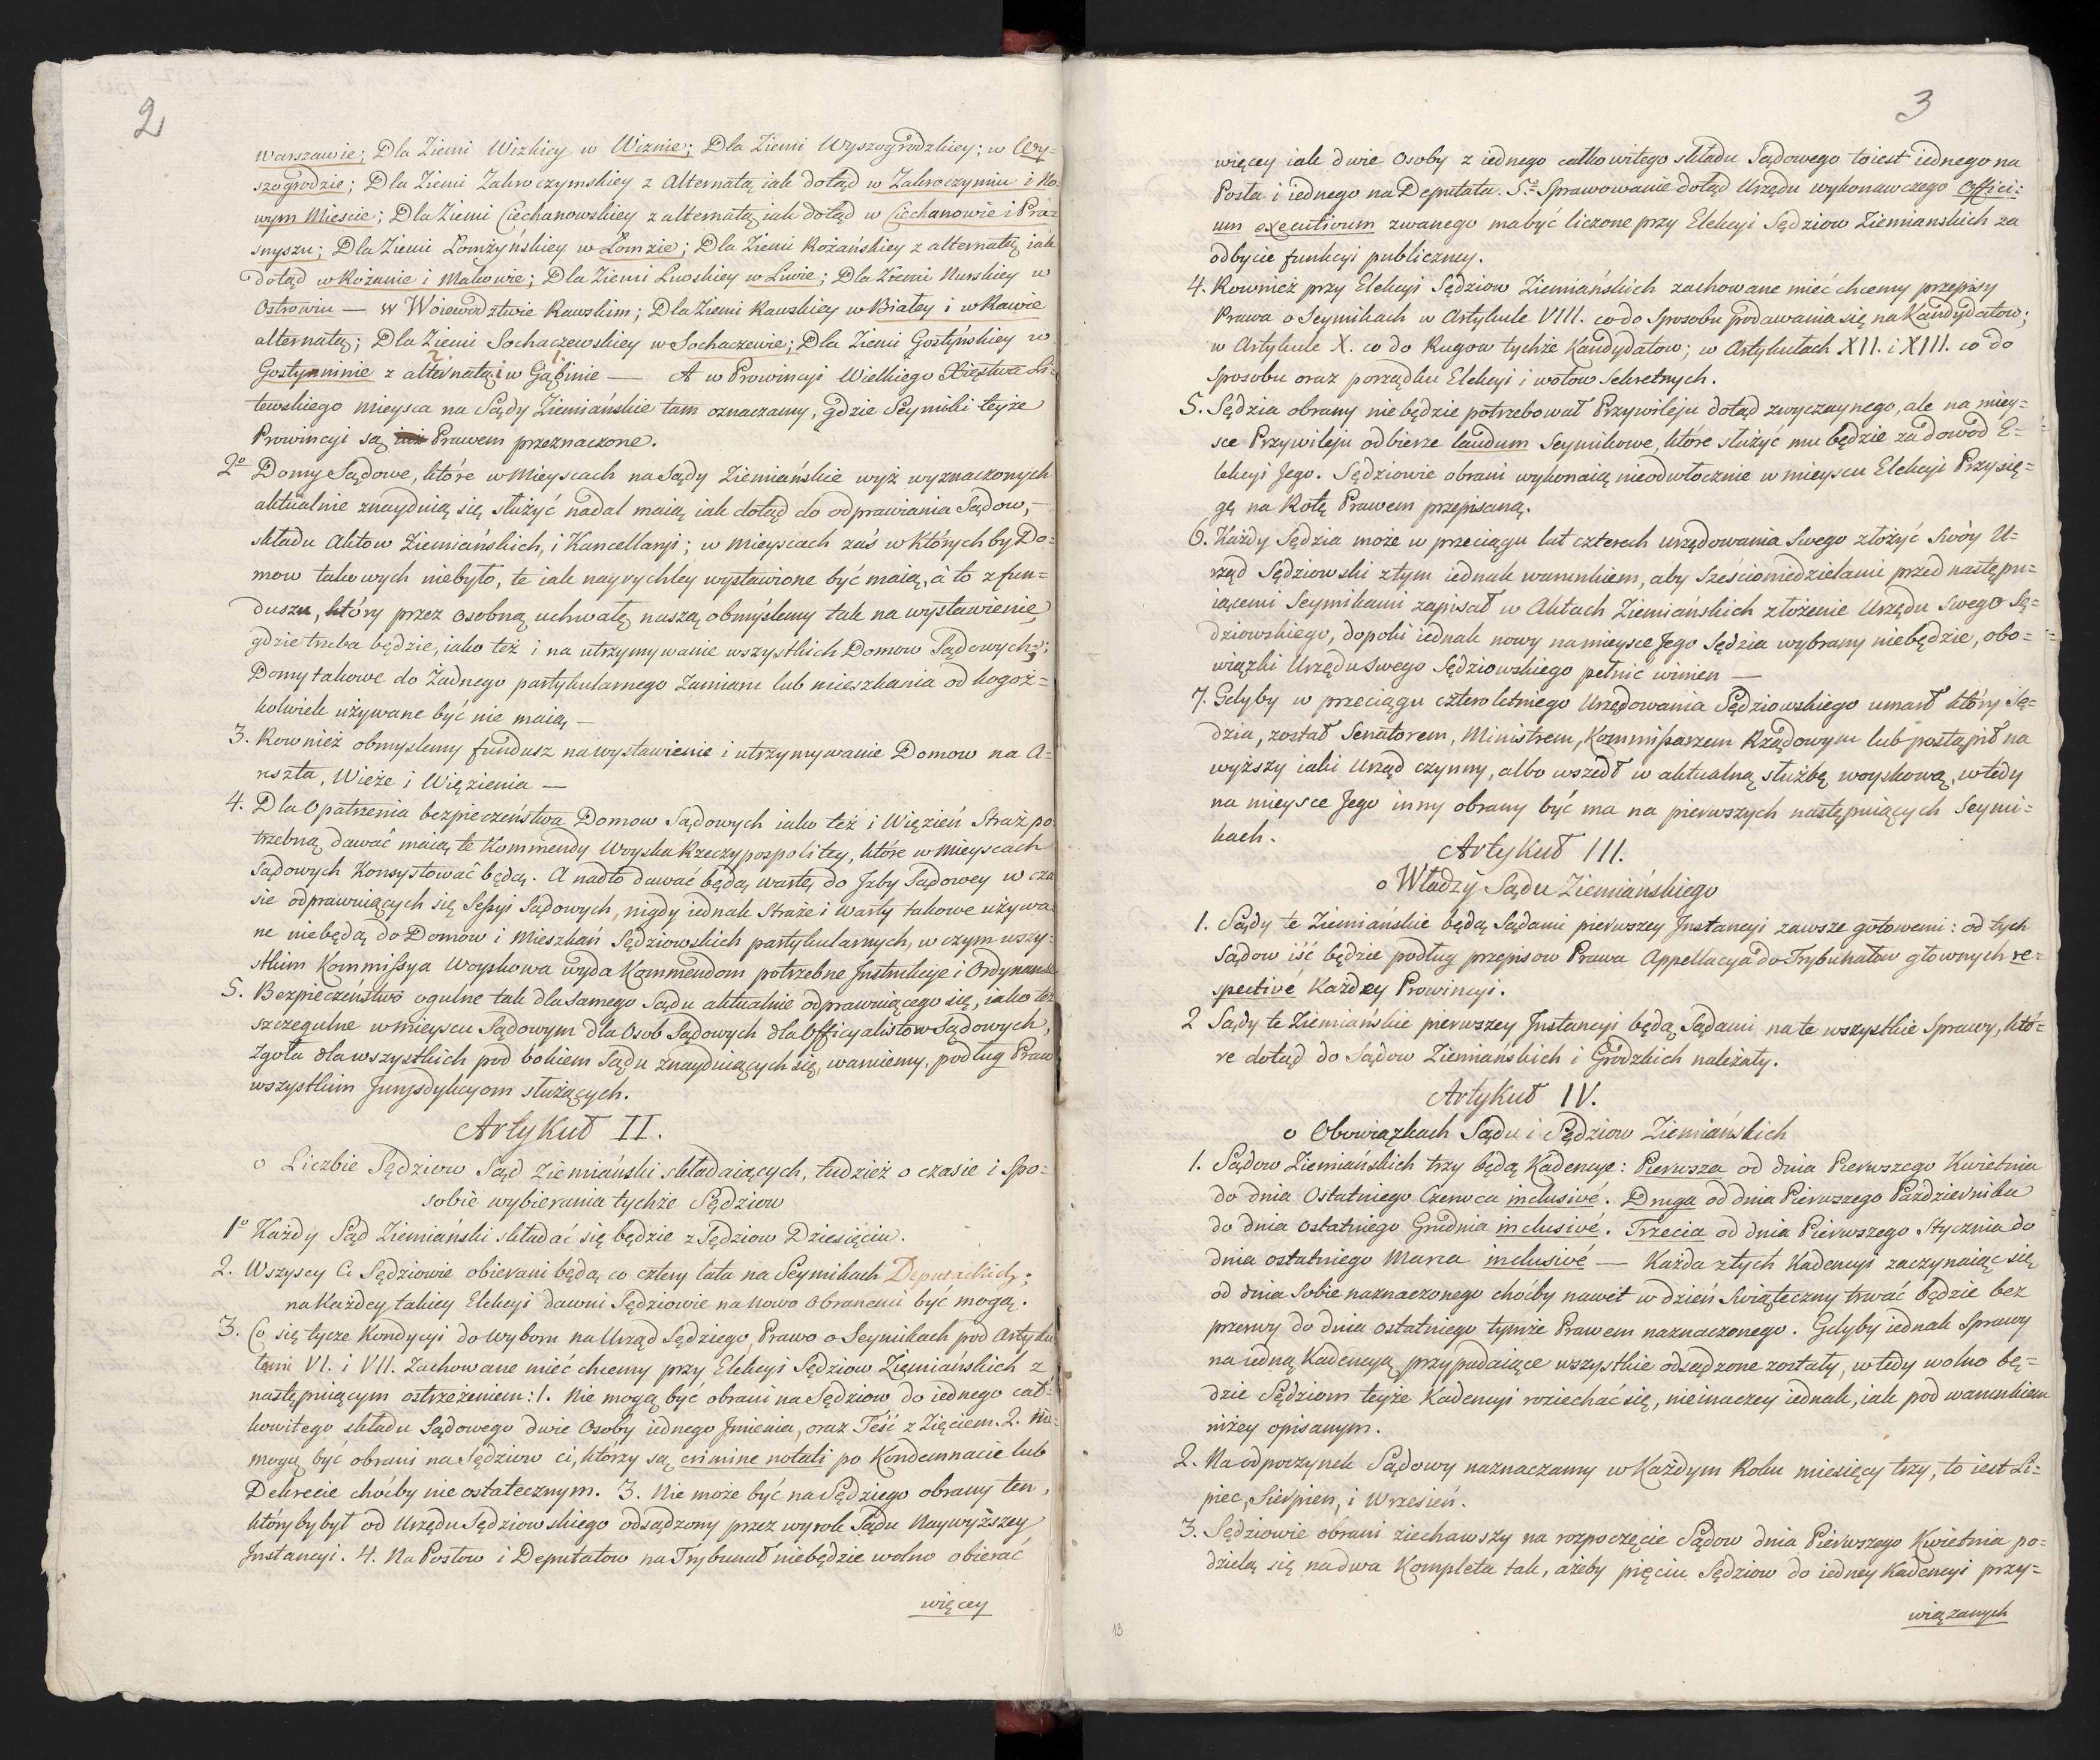 2
Warszawie; Dla Ziemi Wizkiey w Wiznie; Dla Ziemi Wyszogrodzkiey; w Wy=
szogrodzie; Dla Ziemi Zakroczymskiey z Alternatą iak dotąd w Zakroczymiu i No=
wym Mieście; Dla Ziemi Ciechanowskiey z alternatą iak dotąd w Ciechanowie i Pra=
snyszu; Dla Ziemi Łomżyńskiey w Łomzie; Dla Ziemi Rożańskiey z alternatą iak
dotąd w Rożanie i Makowie; Dla Ziemi Liwskiey w Liwie; Dla Ziemi Nurskiey w
Ostrowiu — W Woiewodztwie Rawskim; Dla Ziemi Rawskiey w Białey i w Rawie
alternatą; Dla Ziemi Sochaczewskiey w Sochaczewie; Dla Ziemi Gostyńskiey w
Gostynninie z alternatą i w Gąbinie — A w Prowincyi Wielkiego Xięstwa Li=
tewskiego mieysca na Sądy Ziemiańskie tam oznaczamy, gdzie Seymiki teyże
Prowincyi są iuż Prawem przeznaczone.
2º Domy Sądowe, które w Mieyscach na Sądy Ziemiańskie wyż wyznaczonych
aktualnie znayduią się, służyć nadal maią iak dotąd do odprawiania Sądow,
składu Aktow Ziemiańskich, i Kancellaryi; w Mieyscach zaś w których by Do=
mow takowych niebyło, te iak nayrychley wystawione być maią, a to z fun=
duszu, który przez osobną uchwałę naszą obmyślemy tak na wystawienie
gdzie trzeba będzie, iako też i na utrzymywanie wszystkich Domow Sądowych;
Domy takowe do Żadnego partykularnego Zamiaru lub mieszkania od kogoż=
kolwiek używane być nie maią —
3. Rownież obmyslemy fundusz na wystawienie i utrzymywanie Domow na A=
reszta, Wieże i Więzienia —
4. Dla Opatrzenia bezpieczeństwa Domow Sądowych iako też i Więzień Straż po=
trzebną dawać maią te Kommendy Woyska Rzeczypospolitey, które w mieyscach
Sądowych Konsystować będą. A nadto dawać będą wartę do Jzby Sądowey w cza
sie odprawuiących się Sessyi Sądowych, nigdy iednak Straże i Warty takowe używa=
ne niebędą do Domow i Mieszkań Sędziowskich partykularnych, w czym wszy=
stkim Kommissya Woyskowa wyda Kommendom potrzebne Jnstrukcye i Ordynanse
5. Bezpieczeństwo ogulne tak dla samego Sądu aktualnie odprawuiącego się, iako też
szczegulne w mieyscu Sądowym dla Osob Sądowych dla Officyalistow Sądowych,
Zgoła dla wszystkich pod bokiem Sądu znayduiących się, waruiemy, podług Praw
wszystkim Jurysdykcyom służących.
Artykuł II.
o Liczbie Sędziow Sąd Ziemiański składaiących, tudzież o czasie i Spo=
sobie wybierania tychże Sędziow
1º Każdy Sąd Ziemiański składać się będzie z Sędziow Dziesięciu.
2. Wszyscy Ci Sędziowie obierani będą co cztery lata na Seymikach Deputackich;
na każdey takiey Elekcyi dawni Sędziowie na nowo obranemi być mogą.
3. Co się tycze Kondycyi do wyboru na Urząd Sędziego, Prawo o Seymikach pod Artyku
łami VI. i VII. Zachowane mieć chcemy przy Elekcyi Sędziow Ziemiańskich z
następuiącym ostrzeżeniem: 1. Nie mogą być obrani na Sędziow do iednego cał=
kowitego składu Sądowego dwie Osoby iednego Jmienia, oraz Teść z Zięciem. 2. Nie=
mogą być obrani na Sędziow ci, którzy są crimine notati po Kondemnacie lub
Dekrecie choćby nie ostatecznym. 3. Nie może być na Sędziego obrany ten,
któryby był od Urzędu Sędziowskiego odsądzony przez wyrok Sądu Naywyższey
Jnstancyi. 4. Na Posłow i Deputatow na Trybunał niebędzie wolno obierać
więcey
3
więcey iak dwie osoby z iednego całkowitego składu Sądowego toiest iednego na
Posła i iednego na Deputata. 5º Sprawowanie dotąd Urzędu wykonawczego Offici=
um executivum zwanego ma być liczone przy Elekcyi Sędziow Ziemianskich za
odbycie funkcyi publiczney.
4. Rownież przy Elekcyi Sędziow Ziemiańskich zachowane mieć chcemy przepisy
Prawa o Seymikach w Artykule VIII. co do Sposobu podawania się na Kandydatow;
w Artykule X. co do Rugow tychże Kandydatow; w Artykułach XII. i XIII. co do
sposobu oraz porządku Elekcyi i wotow Sekretnych.
5. Sędzia obrany nie będzie potrzebował Przywileju dotąd zwyczaynego, ale na miey=
sce Przywileju odbierze laudum Seymikowe, które służyć mu będzie za dowod E=
lekcyi Jego. Sędziowie obrani wykonaią nieodwłocznie w mieyscu Elekcyi Przysię=
gę na Rotę Prawem przepisaną.
6. Każdy Sędzia może w przeciągu lat czterech urzędowania Swego złożyć Swóy U=
rząd Sędziowski z tym iednak warunkiem, aby Sześcioniedzielami przed następu=
iącemi Seymikami zapisał w Aktach Ziemiańskich złożenie Urzędu Swego Sę=
dziowskiego, dopoki iednak nowy na mieysce Jego Sędzia wybrany niebędzie, obo=
wiązki Urzędu swego Sędziowskiego pełnić winien —
7. Gdyby w przeciągu czteroletniego Urzędowania Sędziowskiego umarł który Sę=
dzia, został Senatorem, Ministrem, Kommissarzem Rządowym lub postąpił na
wyższy iaki Urząd czynny, albo wszedł w aktualną służbę woyskową, wtedy
na mieysce Jego inny obrany być ma na pierwszych następuiących Seymi=
kach.
Artykuł III.
o Władzy Sądu Ziemiańskiego
1. Sądy te Ziemiańskie będą Sądami pierwszey Jnstancyi zawsze gotowemi: od tych
Sądow iść będzie podług przepisow Prawa Appellacya do Trybunałow głownych re=
spectivé Każdey Prowincyi.
2 Sądy te Ziemiańskie pierwszey Jnstancyi będą Sądami na te wszystkie Sprawy, któ=
re dotąd do Sądow Ziemianskich i Grodzkich należały.
Artykuł IV.
o Obowiązkach Sądu i Sędziow Ziemiańskich
1. Sądow Ziemiańskich trzy będą Kadencye: Pierwsza od dnia Pierwszego Kwietnia
do dnia Ostatniego Czerwca inclusivé. Druga od dnia Pierwszego Pazdziernika
do dnia ostatniego Grudnia inclusivé. Trzecia od dnia Pierwszego Stycznia do
dnia ostatniego Marca inclusivé — Każda z tych Kadencyi zaczynaiąc się
od dnia Sobie naznaczonego choćby nawet w dzień Swiąteczny trwać będzie bez
przerwy do dnia ostatniego tymże Prawem naznaczonego. Gdyby iednak Sprawy
na iedną Kadencyą przypadaiące wszystkie odsądzone zostały, wtedy wolno bę=
dzie Sędziom teyże Kadencyi roziechać się, nieinaczey iednak, iak pod warunkiem
niżey opisanym.
2. Na odpoczynek Sądowy naznaczamy w Każdym Roku miesięcy trzy, to iest Li=
piec, Sierpien, i Wrzesień.
3. Sędziowie obrani ziechawszy na rozpoczęcie Sądow dnia Pierwszego Kwietnia po=
dzielą się na dwa Kompleta tak, ażeby pięciu Sędziow do iedney Kadencyi przy=
wiązanych
13